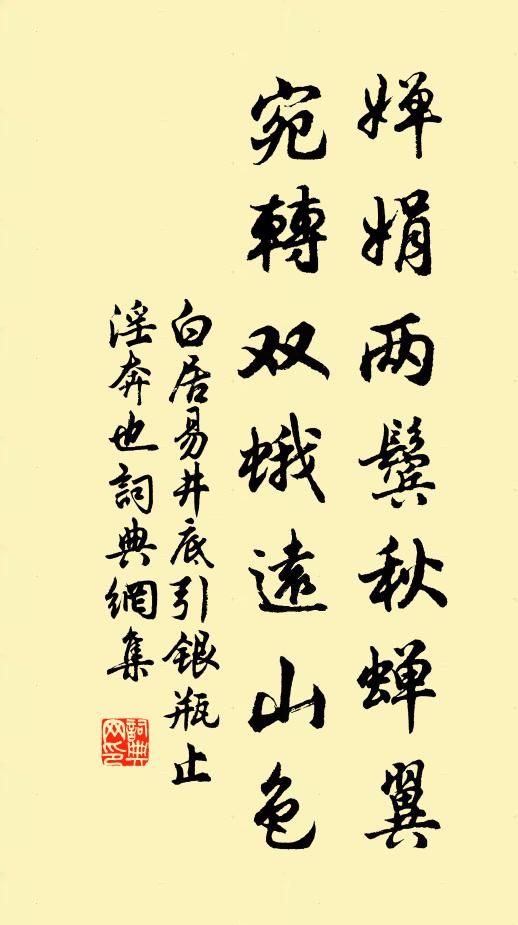 婵娟两鬓秋蝉翼
宛轉双蛾遠山色
白居易井底引银瓶止
淫奔也詞典網集
詞典
网印